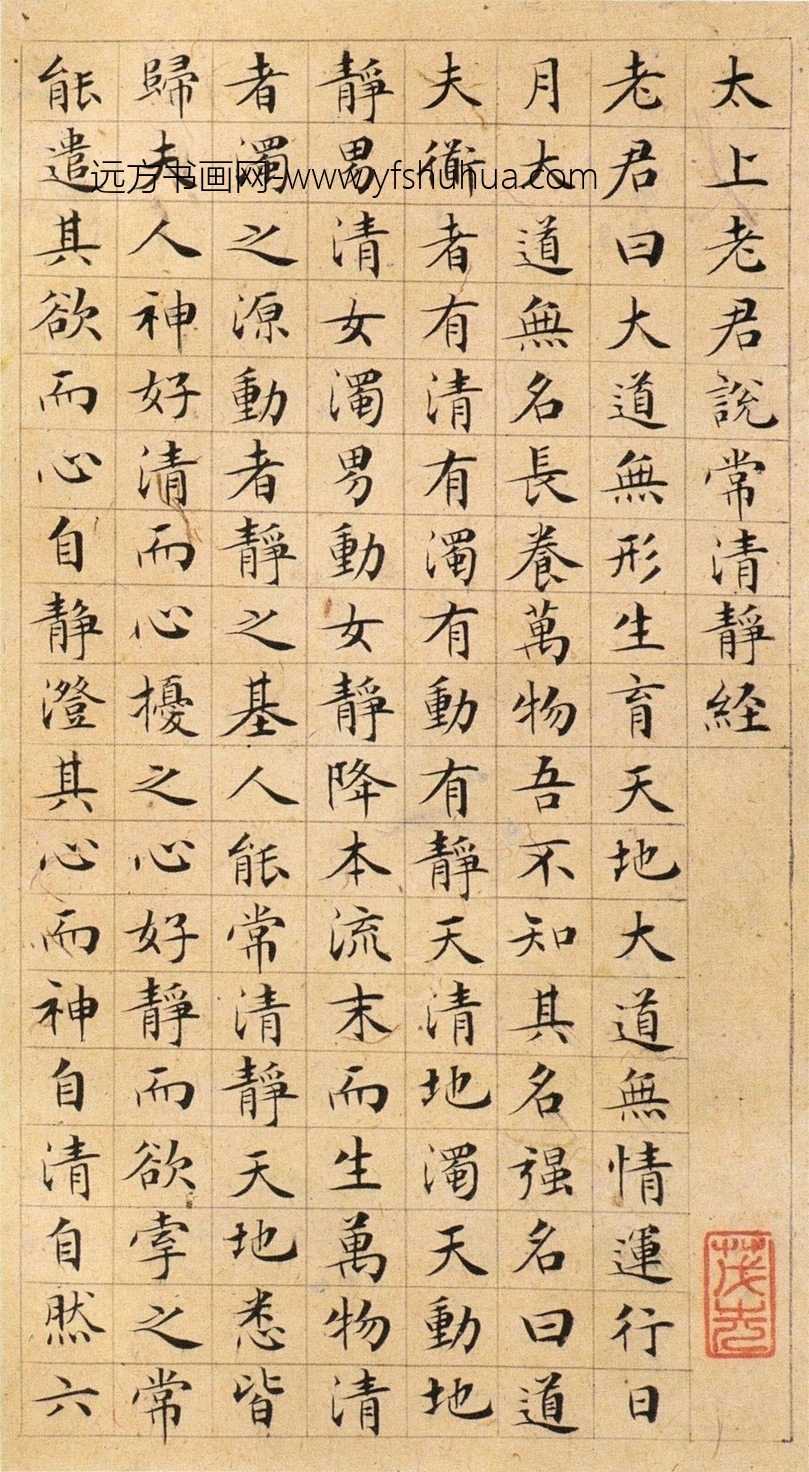 太上老君說常清靜経
老君曰大道無形生育天地大道無情運行日
月大道無名長養萬物吾不知其名强名曰道
夫衜者有清有濁有動有靜天清地濁天動地
靜男清女濁男動女靜降本流末而生萬物清
者濁之源動者靜之基人能常清靜天地悉皆
歸夫人神好清而心擾之心好靜而欲牽之常
能遣其欲而心自静澄其心而神自清自然六
远方书画网 www.yfshuhua.com